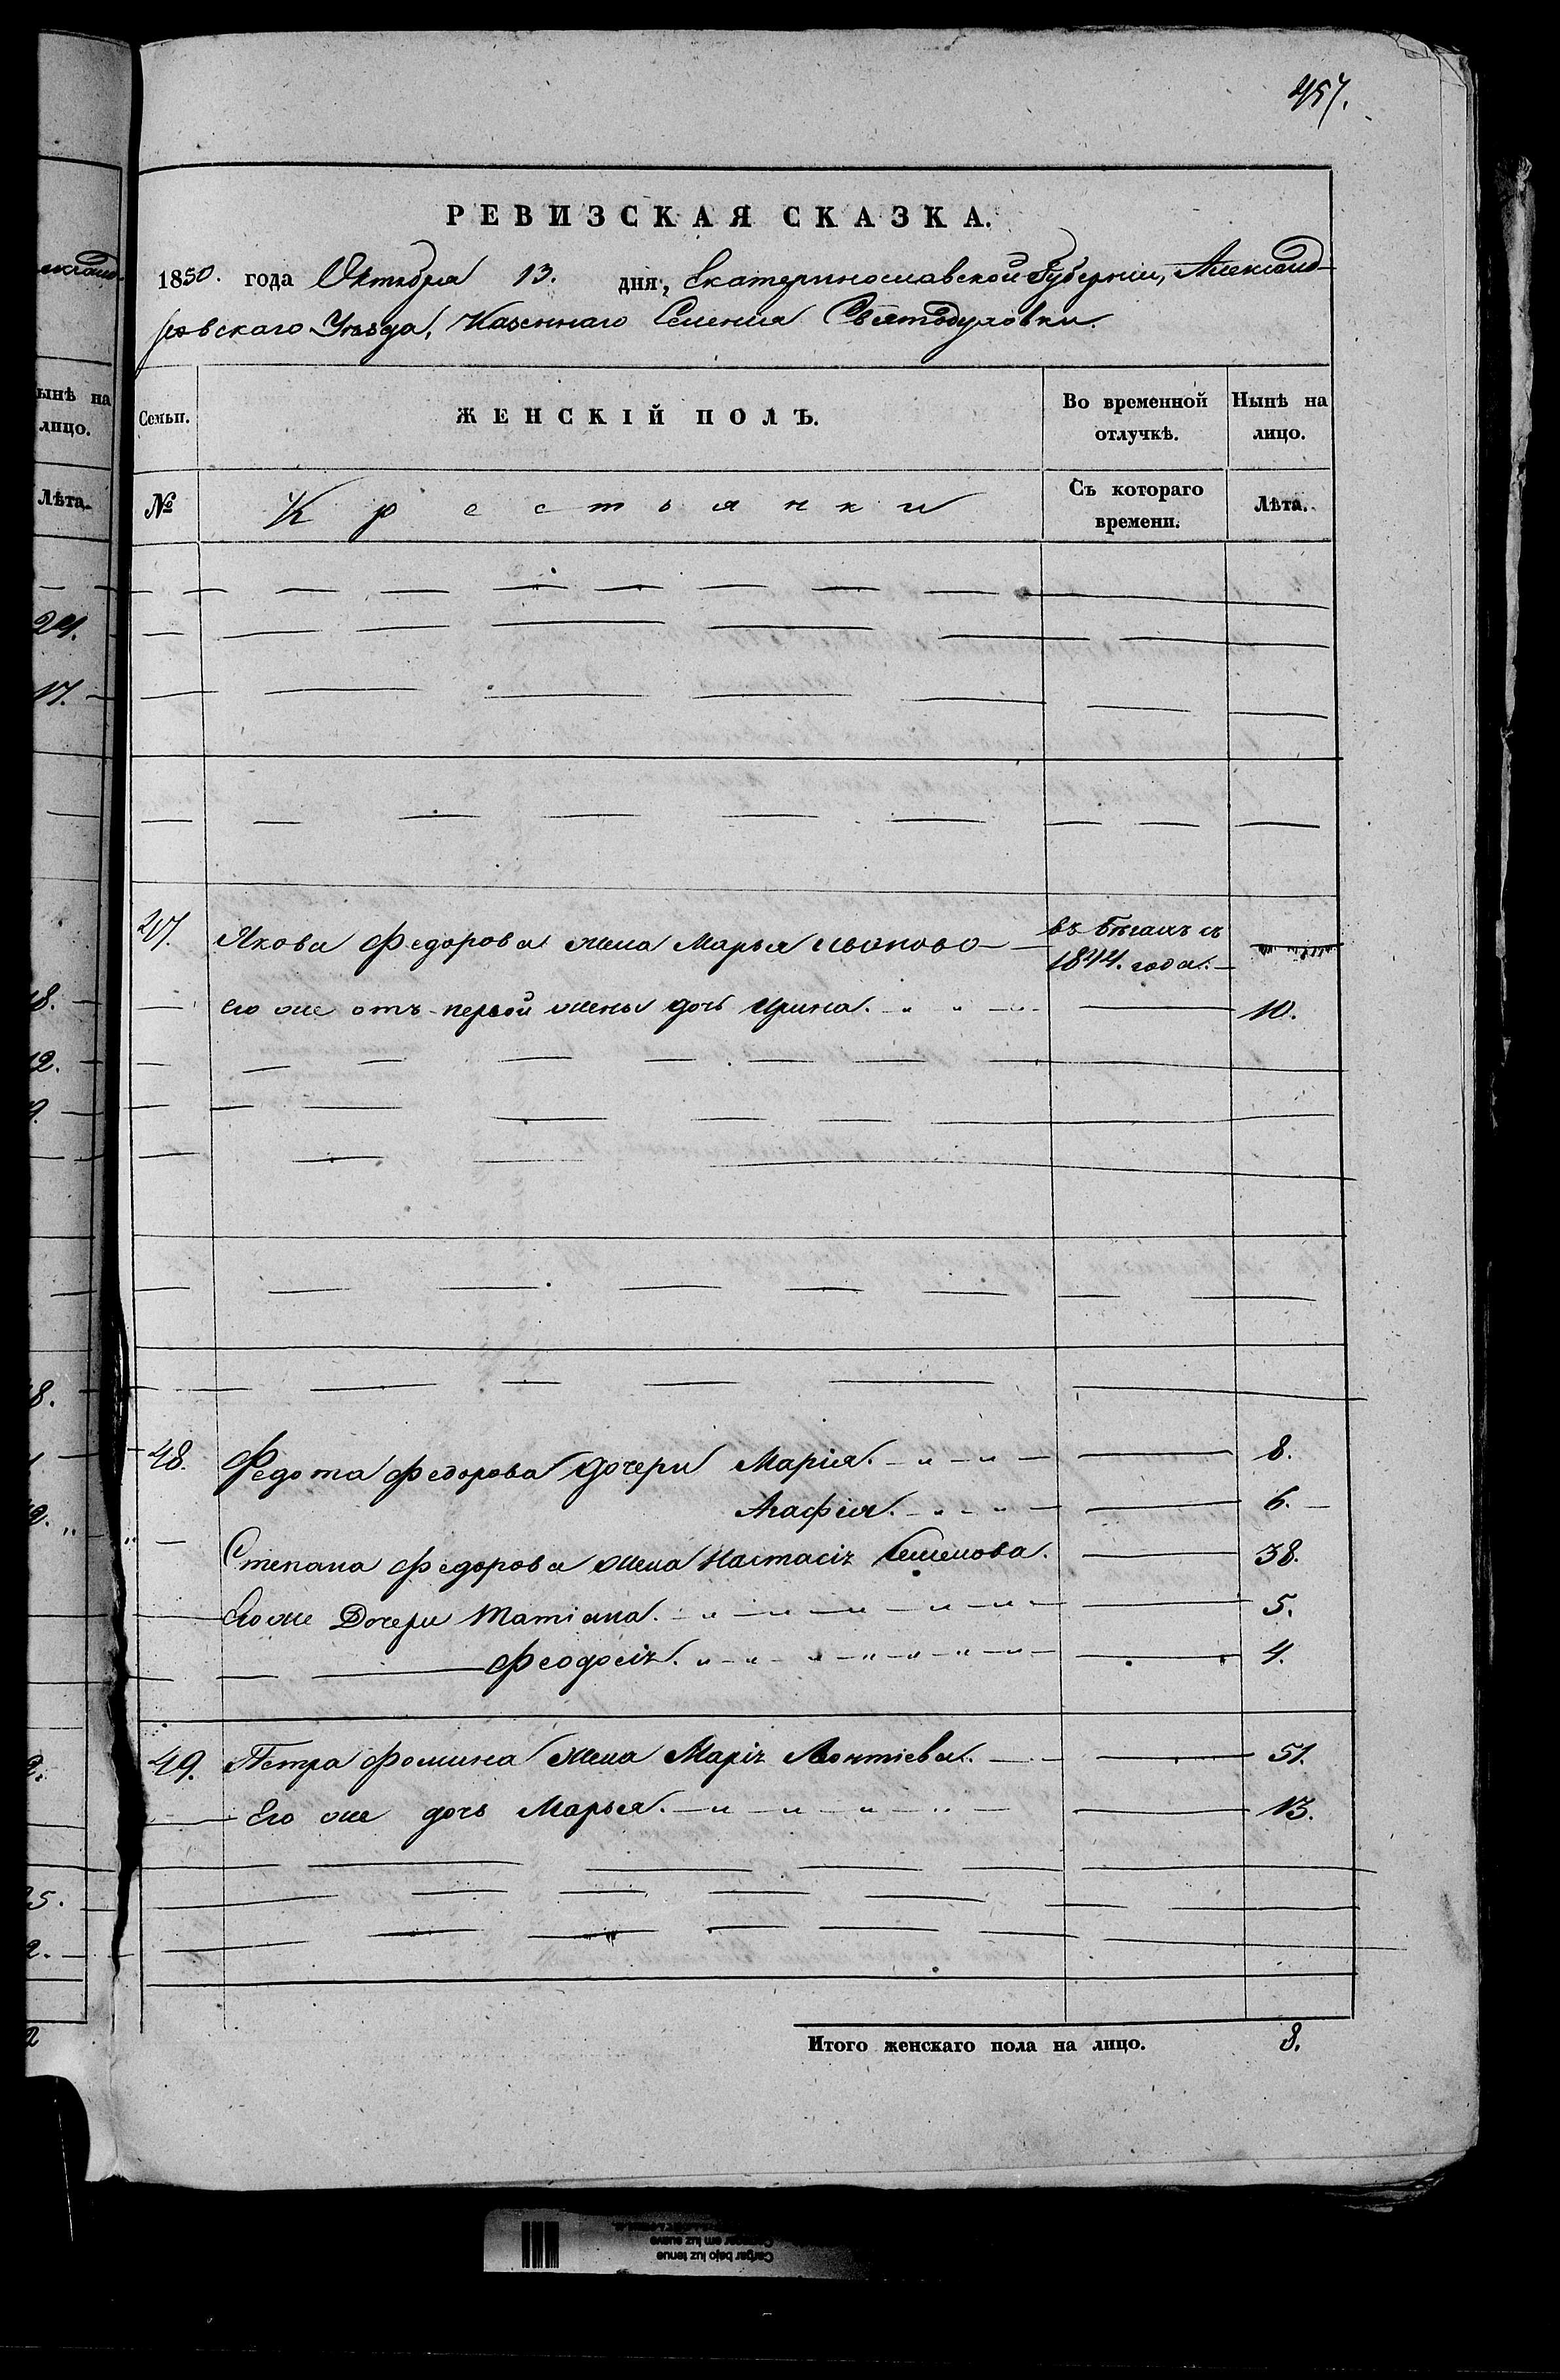 457.
РЕВИЗСКАЯ СКАЗКА.
1850. года Октября 13. дня, Екатеринославской Губерніи, Александ-
ровскаго Уѣзда, Казеннаго Селенія Святодуховки.
Семьи. ЖЕНСКІЙ ПОЛЪ. Во временной отлучкѣ. Ныпѣ на лицо.
№ Крестьянки Съ котораго времени. Лѣта.
47. Якова Федорова жена Марья въ бѣгахъ съ
1844. года.
Его же отъ первой жены дочь Ирина. 10.
48. Федота Федорова дочери Марія. 8.
Агафія. 6.
Степана Федорова жена Настасія Семенова. 38.
Его же Дочери Татіана. 5.
Феодосія. 4.
49. Петра Фомина жена Марія Леонтіева. 51.
Его же дочь Марья. 13.
Итого женскаго пола на лицо. 8.
ександ-
ынѣ на
лицо.
Лѣта.
24.
17.
Cargar bajo luz tenue